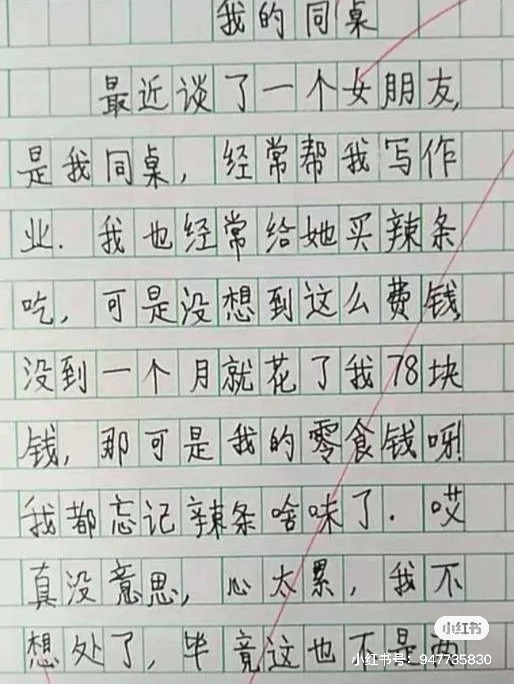 我的同桌
最近谈了一个女朋友,
是我同桌，经常帮我写作
业．我也经常给她买辣条
吃，可是没想到这么费钱,
没到一个月就花了我78块
钱，那可是我的零食钱呀!
我都忘记辣条啥味了．哎
真没意思，心太累，我不
想处了，毕竟这也不是两
小红书
小红书号：947735830